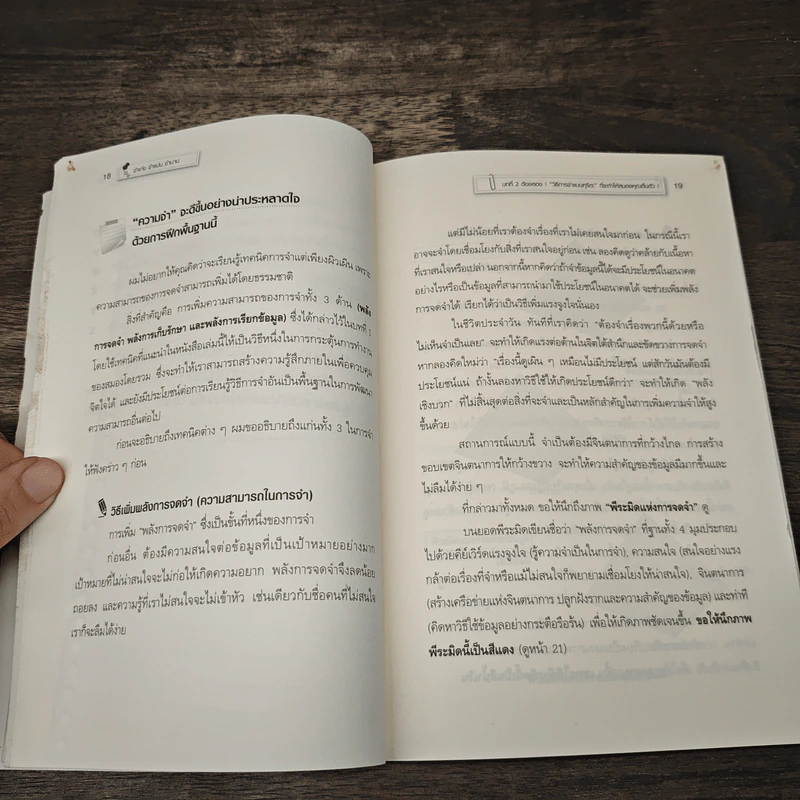 18
จำเก่ง จำแม่น จำนาน
"ความจำ" จะดีขึ้นอย่างน่าประหลาดใจ
ด้วยการฝึกพื้นฐานนี้
ผมไม่อยากให้คุณคิดว่าจะเรียนรู้เทคนิคการจำแต่เพียงผิวเผิน เพราะ
ความสามารถของการจดจำสามารถเพิ่มได้โดยธรรมชาติ
สิ่งที่สำคัญคือ การเพิ่มความสามารถของการจำทั้ง 3 ด้าน (พลัง
การจดจำ พลังการเก็บรักษา และพลังการเรียกข้อมูล) ซึ่งได้กล่าวไว้ในบทที่ 1
โดยใช้เทคนิคที่แนะนำในหนังสือเล่มนี้ให้เป็นวิธีหนึ่งในการกระตุ้นการทำงาน
ของสมองโดยรวม ซึ่งจะทำให้เราสามารถสร้างความรู้สึกภายในเพื่อควบคุม
จิตใจได้ และยังมีประโยชน์ต่อการเรียนรู้วิธีการจำอันเป็นพื้นฐานในการพัฒนา
ความสามารถอื่นต่อไป
ก่อนจะอธิบายถึงเทคนิคต่าง ๆ ผมขออธิบายถึงแก่นทั้ง 3 ในการจำ
ให้ฟังคร่าว ๆ ก่อน
วิธีเพิ่มพลังการจดจำ (ความสามารถในการจำ)
การเพิ่ม "พลังการจดจำ" ซึ่งเป็นขั้นที่หนึ่งของการจำ
ก่อนอื่น ต้องมีความสนใจต่อข้อมูลที่เป็นเป้าหมายอย่างมาก
เป้าหมายที่ไม่น่าสนใจจะไม่ก่อให้เกิดความอยาก พลังการจดจำจึงลดน้อย
ถอยลง และความรู้ที่เราไม่สนใจจะไม่เข้าหัว เช่นเดียวกับชื่อคนที่ไม่สนใจ
เราก็จะลืมได้ง่าย
บทที่ 2 ต้องลอง ! "วิธีการจำแบบคุโรดะ" ที่จะทำให้สมองคุณตื่นตัว !
19
แต่มีไม่น้อยที่เราต้องจำเรื่องที่เราไม่เคยสนใจมาก่อน ในกรณีนี้เรา
อาจจะจำโดยเชื่อมโยงกับสิ่งที่เราสนใจอยู่ก่อน เช่น ลองคิดดูว่าคล้ายกับเนื้อหา
ที่เราสนใจหรือเปล่า นอกจากนี้หากคิดว่าถ้าจำข้อมูลนี้ได้จะมีประโยชน์ในอนาคต
อย่างไรหรือเป็นข้อมูลที่สามารถนำมาใช้ประโยชน์ในอนาคตได้ จะช่วยเพิ่มพลัง
การจดจำได้ เรียกได้ว่าเป็นวิธีเพิ่มแรงจูงใจนั่นเอง
ในชีวิตประจำวัน ทันทีที่เราคิดว่า "ต้องจำเรื่องพวกนี้ด้วยหรือ
ไม่เห็นจำเป็นเลย" จะทำให้เกิดแรงต่อต้านในจิตใต้สำนึกและขัดขวางการจดจำ
หากลองคิดใหม่ว่า "เรื่องนี้ดูเผิน ๆ เหมือนไม่มีประโยชน์ แต่สักวันมันต้องมี
ประโยชน์แน่ ถ้างั้นลองหาวิธีใช้ให้เกิดประโยชน์ดีกว่า" จะทำให้เกิด "พลัง
เชิงบวก" ที่ไม่สิ้นสุดต่อสิ่งที่จะจำและเป็นหลักสำคัญในการเพิ่มความจำให้สูง
ขึ้นด้วย
สถานการณ์แบบนี้ จำเป็นต้องมีจินตนาการที่กว้างไกล การสร้าง
ขอบเขตจินตนาการให้กว้างขวาง จะทำให้ความสำคัญของข้อมูลมีมากขึ้นและ
ไม่ลืมได้ง่าย ๆ
ที่กล่าวมาทั้งหมด ขอให้นึกถึงภาพ "พีระมิดแห่งการจดจำ" ดู
บนยอดพีระมิดเขียนชื่อว่า "พลังการจดจำ" ที่ฐานทั้ง 4 มุมประกอบ
ไปด้วยคีย์เวิร์ดแรงจูงใจ (รู้ความจำเป็นในการจำ), ความสนใจ (สนใจอย่างแรง
กล้าต่อเรื่องที่จำหรือแม้ไม่สนใจก็พยายามเชื่อมโยงให้น่าสนใจ), จินตนาการ
(สร้างเครือข่ายแห่งจินตนาการ ปลูกฝังรากและความสำคัญของข้อมูล) และท่าที
(คิดหาวิธีใช้ข้อมูลอย่างกระตือรือร้น) เพื่อให้เกิดภาพชัดเจนขึ้น ขอให้นึกภาพ
พีระมิดนี้เป็นสีแดง (ดูหน้า 21)